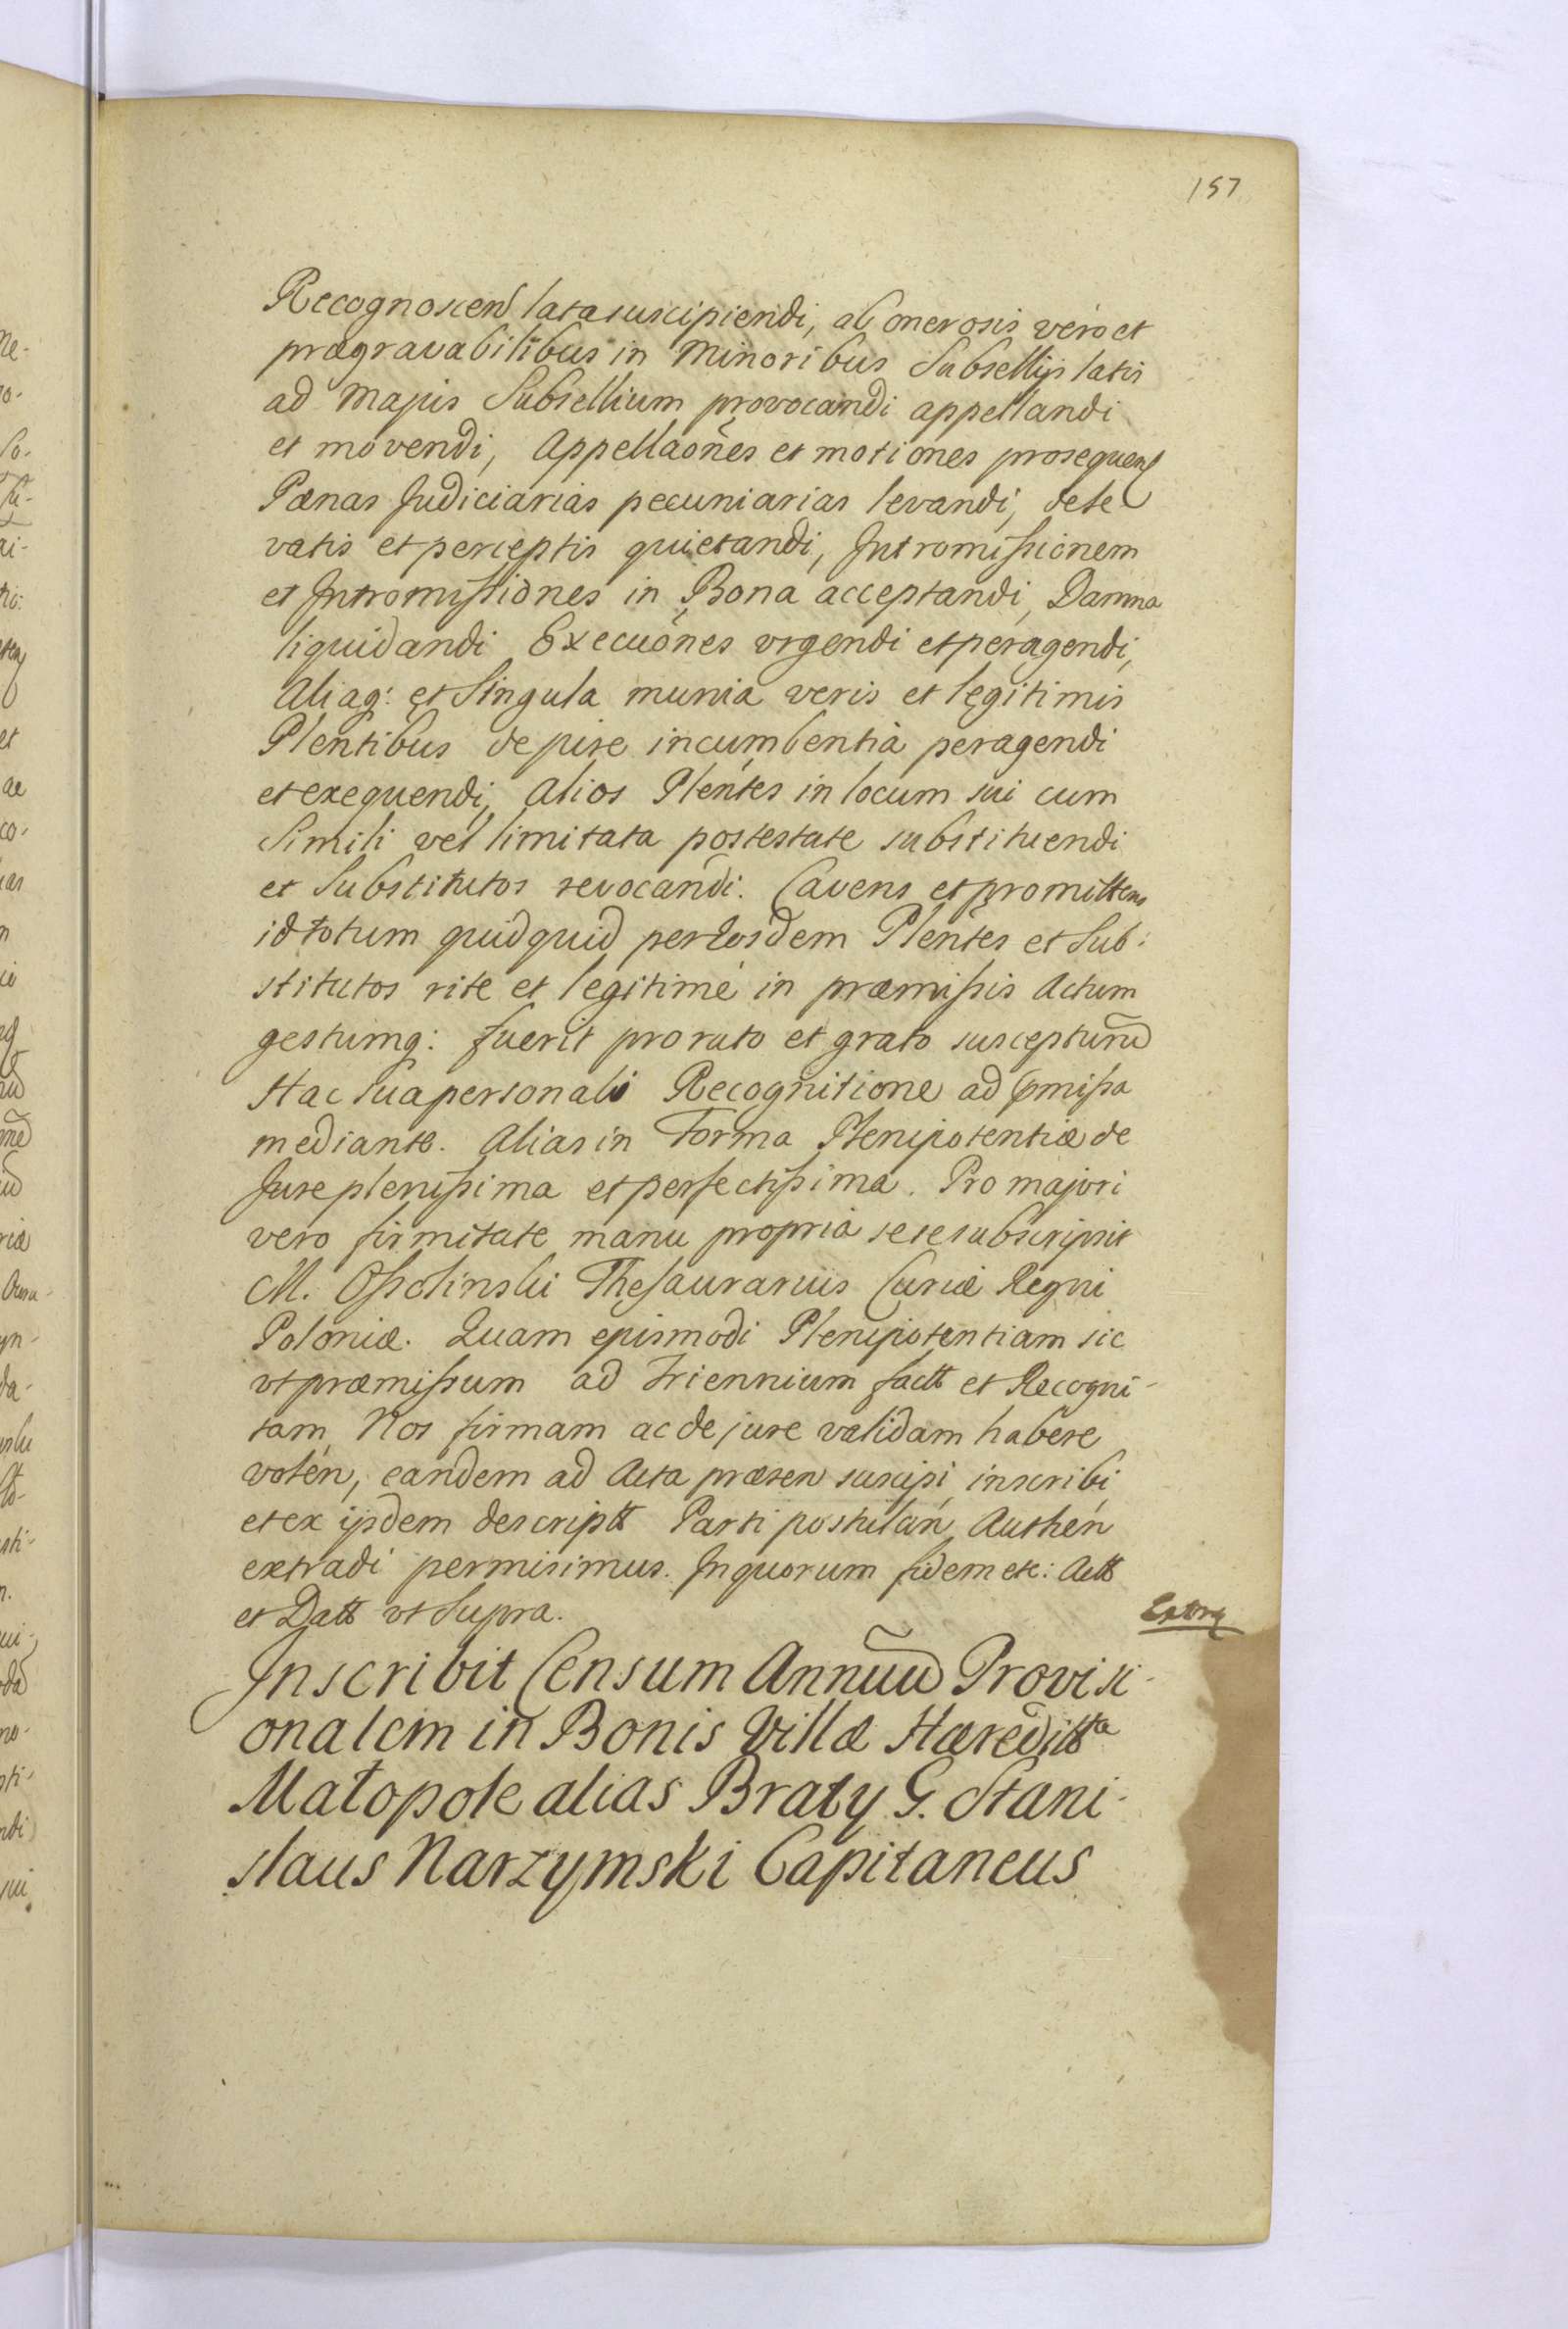 157
Recognoscen lata suscipiendi, ab onerosis vero et
prægravabilibus in Minoribus Subsellijs latis
ad Majus Subsellium provocandi appellandi
et movendi, Appellaões et motiones prosequen
Pænas Judiciarias pecuniarias levandi, de le
vatis et perceptis quietandi, Intromissionem
et Intromissiones in Bona acceptandi, Damna
liquidandi Execuões urgendi et peragendi,
Aliaq: et Singula munia veris et legitimis
Plentibus de jure incumbentia peragendi
et exequendi, Alios Plentes in locum sui cum
Simili vel limitata postestate substituendi
et Substitutos revocandi. Cavens et promittens
id totum quidquid per Eosdem Plentes et Sub:
stitutos rite et legitimé in præmissis Actum
gestumq: fuerit pro rato et grato suscepturũ
Hac sua personali Recognitione ad pmissa
mediante. Alias in Forma Plenipotentiæ de
Jure plenissima et perfectissima. Pro majori
vero firmitate manu propria sese subscripsit
M. Ossolinski Thesaurarius Curiæ Regni
Poloniæ. Quam ejusmodi Plenipotentiam sic
ut præmissum ad Triennium factt et Recogni-
tam Nos firmam ac de jure validam habere
volén, eandem ad Acta præsen suscipi inscribi
et ex ijsdem descriptt Parti postulán Authén
extradi permisimus. In quorum fidem etc: Actt
et Datt ut Supra.
Extra
Inscribit Censum Annuũ Provisi-
onalem in Bonis Villæ Hæredittа
Małopole alias Brały G. Stani-
slaus Narzymski Capitaneus